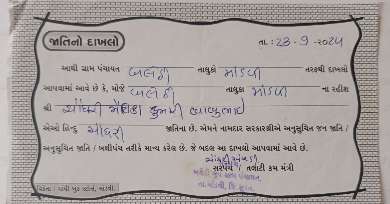 જાતિનો દાખલો
તા. : 23 - 9 -2024
આથી ગ્રામ પંચાયત બલેઠી તાલુકો માંડવી તરફથી દાખલો
આપવામાં આવે છે કે, મોજે બલેઠી તાલુકા માંડવી ના રહીશ
શ્રી ચૌધરી કુમારી બાબુભાઈ
એઓ હિન્દુ ચૌધરી જાતિના છે. એમને નામદાર સરકારશ્રીએ અનુસુચિત જન જાતિ /
અનુસુચિત જાતિ / બક્ષીપંચ તરીકે માન્ય કરેલ છે. જે બદલ આ દાખલો આપવામાં આવે છે.
સરપંચ / તલાટી કમ મંત્રી
ગ્રામ પંચાયત,
તા. માંડવી, જિ. સુરત